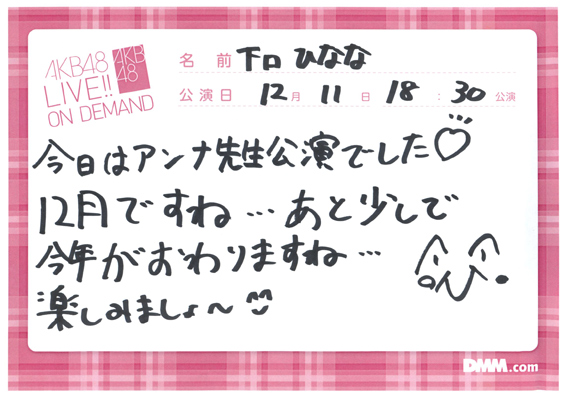 AKB48
LIVE!!
ON DEMAND
AKB
48
名前 下口 ひなな
公演日 12月 11日 18:30公演
今日はアンナ先生公演でした♡
12月ですね…あと少しで
今年がおわりますね…
楽しみましょ〜
DMM.com